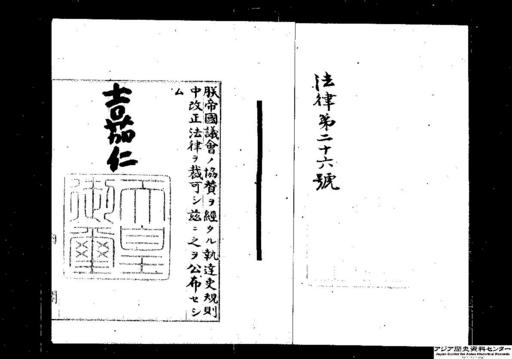 法律第二十六號
朕帝國議會ノ協贊ヲ經タル執達吏規則
中改正法律ヲ裁可シ茲ニ之ヲ公布セシ
ム
嘉仁
天皇御璽
内
閣
アジア歴史資料センター
Japan Center for Asian Historical Records